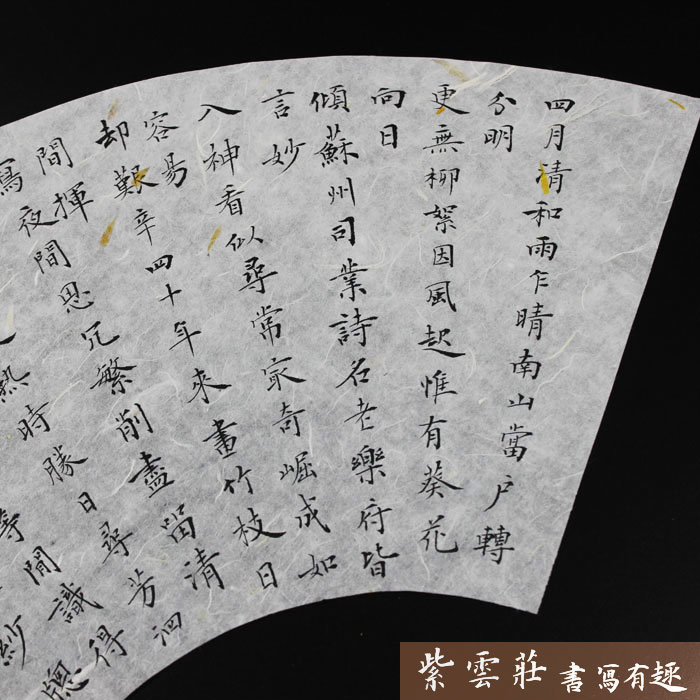 四月清和雨乍晴南山當户轉
分明
更無柳絮因風起惟有葵花
向日
傾蘇州司業詩名老樂府皆
言妙
入神看似尋常最奇崛成如
容易
却艱辛四十年來畫竹枝日
間揮
寫夜間思冗繁削盡留清
熟時勝日尋芳泗
等閒識得
紗牕
紫雲莊 書寫有趣